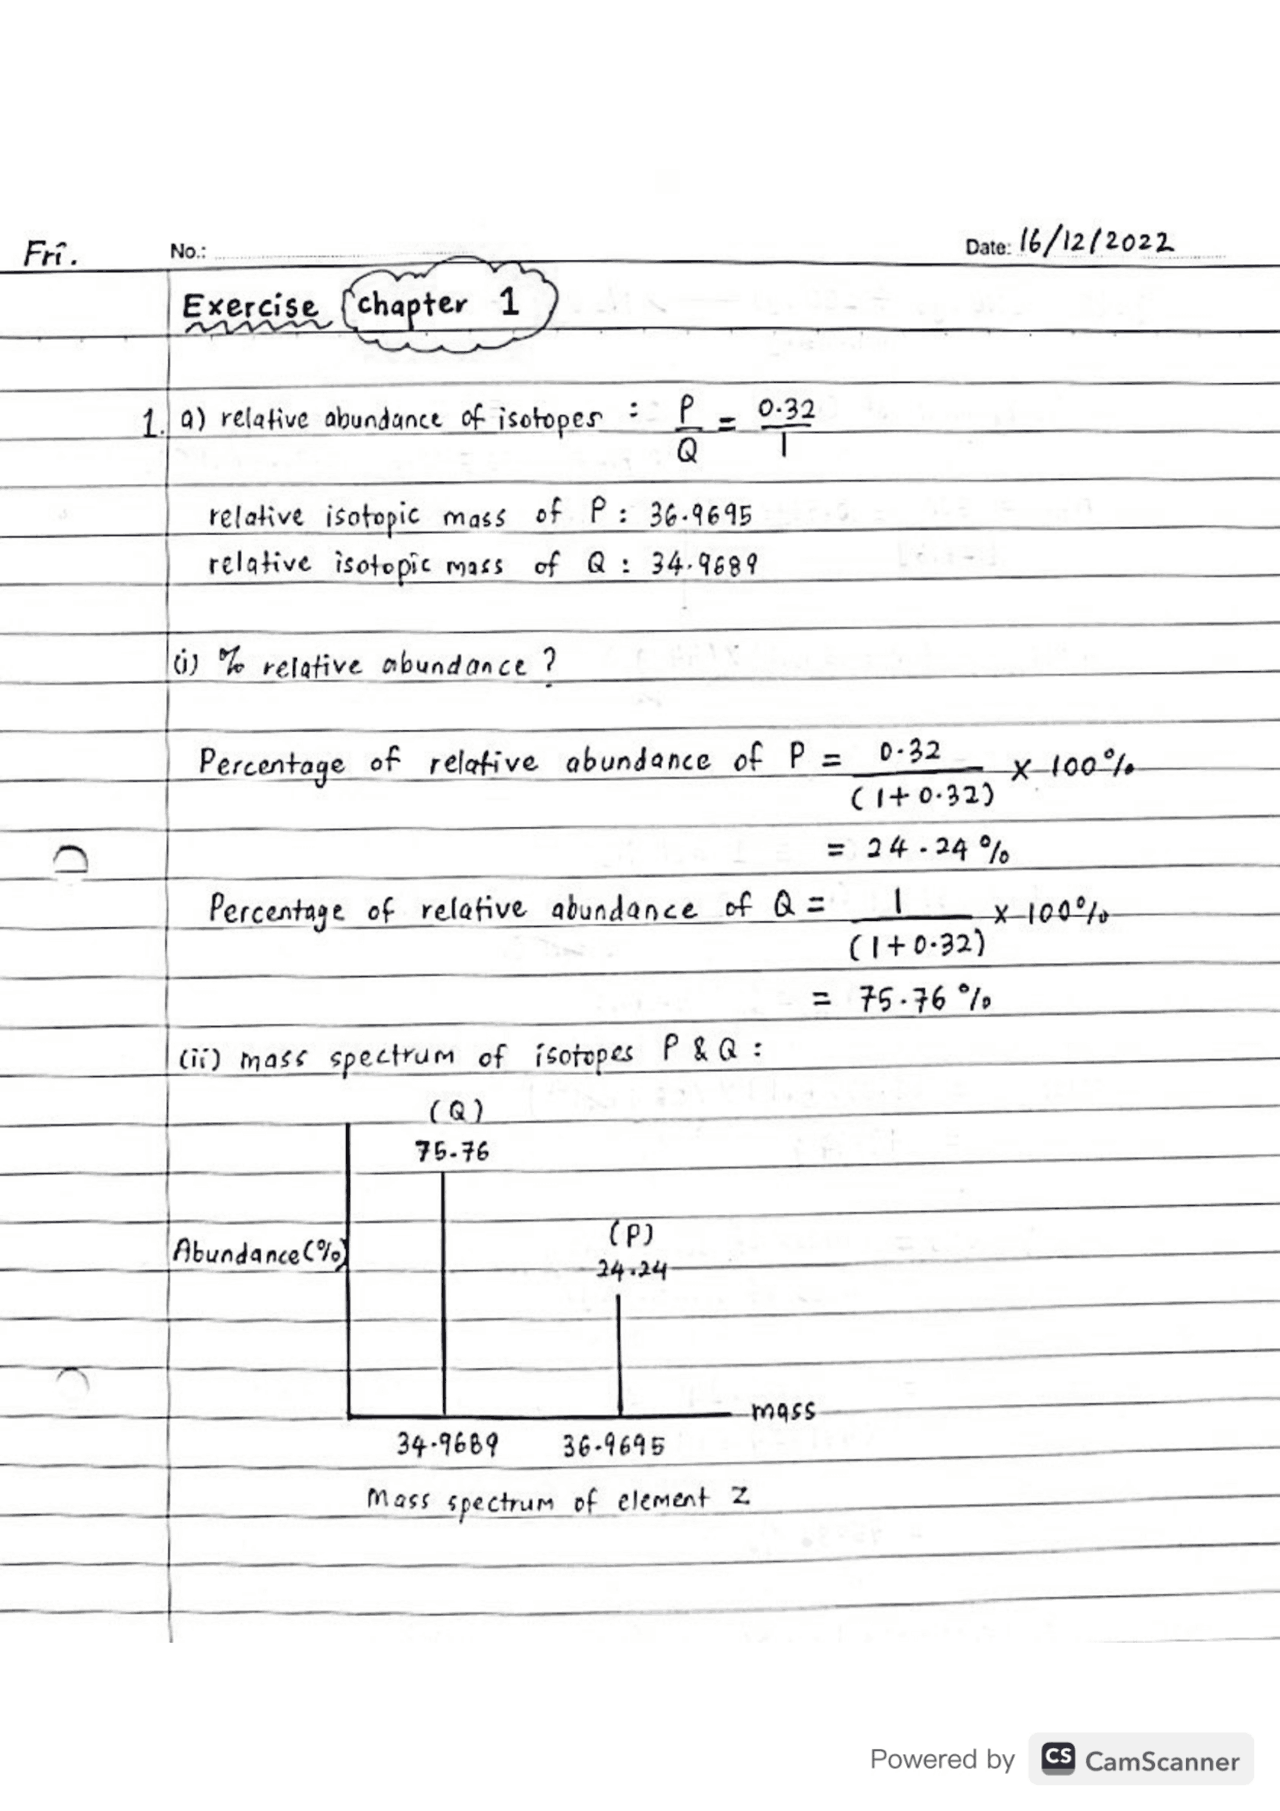 Fri.
No.:
Date: 16/12/2022
Exercise chapter 1
1. a) relative abundance of isotopes : P/Q = 0.32/1
relative isotopic mass of P : 36.9695
relative isotopic mass of Q : 34.9689
(i) % relative abundance ?
Percentage of relative abundance of P = 0.32/(1+0.32) × 100%
= 24.24%
Percentage of relative abundance of Q = 1/(1+0.32) × 100%
= 75.76%
(ii) mass spectrum of isotopes P & Q :
(Q)
75.76
(P)
Abundance (%)
24.24
mass
34.9689 36.9695
Mass spectrum of element Z
Powered by CS CamScanner